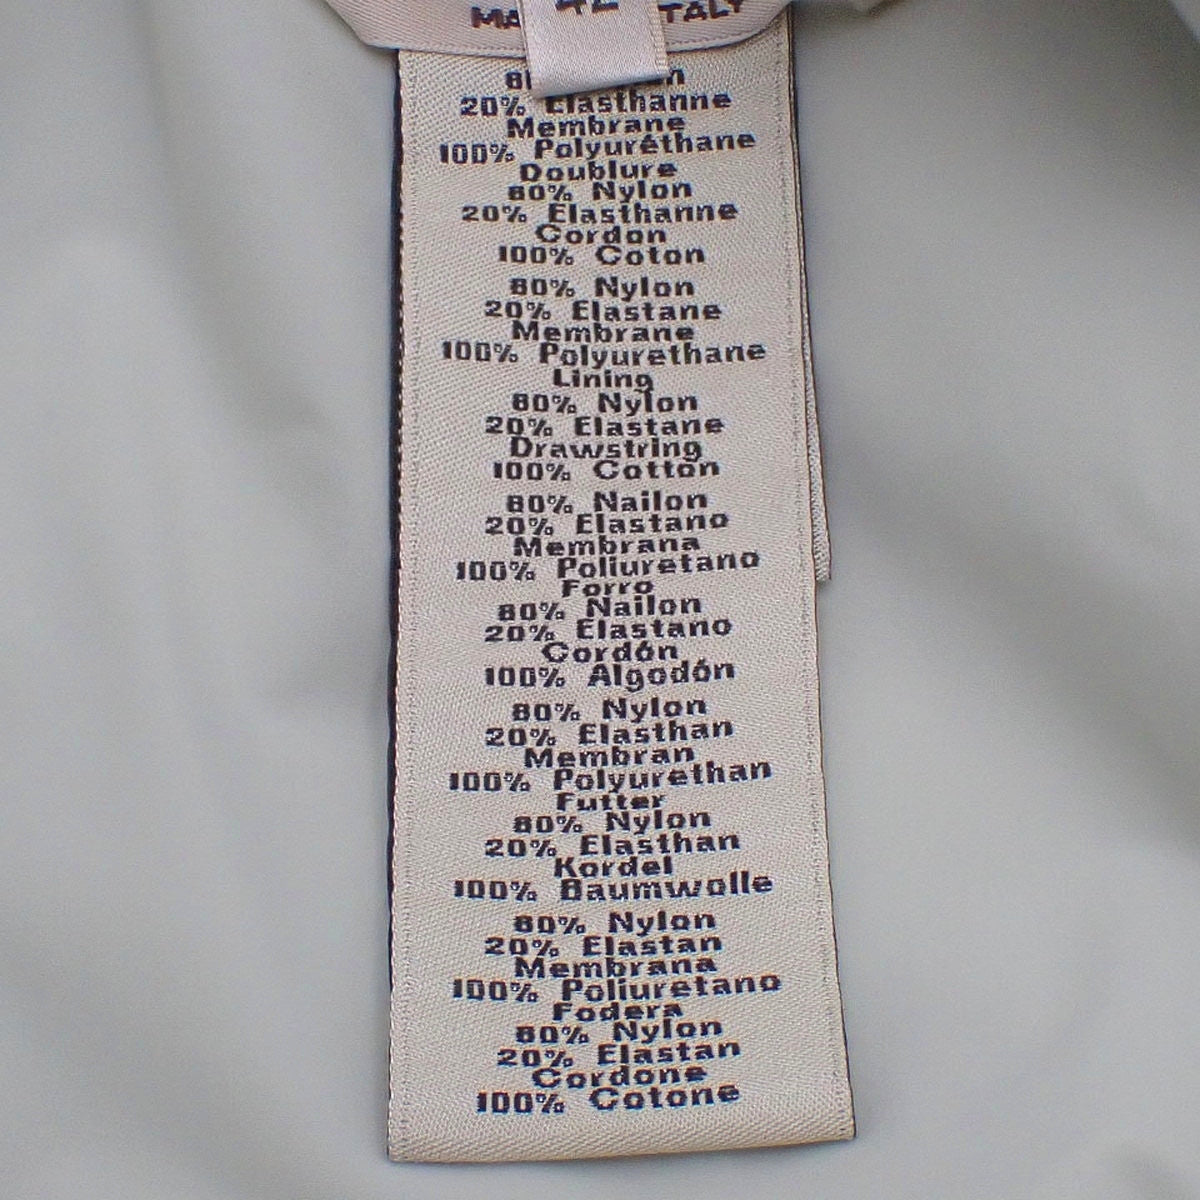 42
20% Elasthanne
Membrane
100% Polyuréthane
Doublure
80% Nylon
20% Elasthanne
Cordon
100% Coton
80% Nylon
20% Elastane
Membrane
100% Polyurethane
Lining
80% Nylon
20% Elastane
Drawstring
100% Cotton
80% Nailon
20% Elastano
Membrana
100% Poliuretano
Forro
80% Nailon
20% Elastano
Cordón
100% Algodón
80% Nylon
20% Elasthan
Membran
100% Polyurethan
Futter
80% Nylon
20% Elasthan
Kordel
100% Baumwolle
80% Nylon
20% Elastan
Membrana
100% Poliuretano
Fodera
80% Nylon
20% Elastan
Cordone
100% Cotone